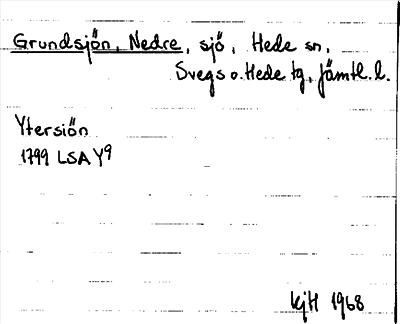 Grundsjön, Nedre, sjö, Hede sn,
Svegs o. Hede tg, Jämtl. l.
Ytersiön
1799 LSA Y9
KjH 1968